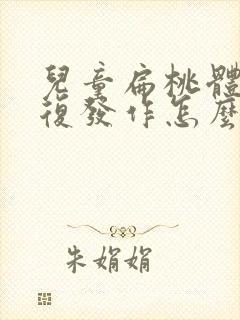 兒童扁桃體
復發作怎麼
朱娟娟